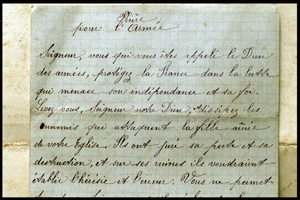 Prière
pour l'Armée
Seigneur, vous qui vous êtes appelé le Dieu
des armées, protégez la France dans la lutte
qui menace son indépendance et sa foi.
Levez-vous, Seigneur notre Dieu, dissipez les
ennemis qui attaquent la fille aînée
de votre Eglise. Ils ont juré sa perte et sa
destruction, et sur ses ruines ils voudraient
établir l'hérésie et l'erreur. Vous ne permet